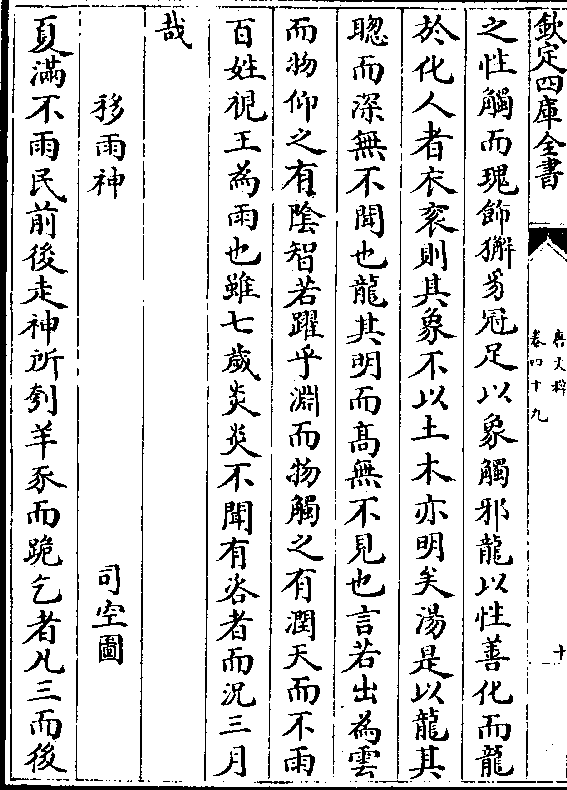 欽定四庫全書
唐文粹
卷四十九
十
之性觸而瑰飾獬豸冠足以象觸邪龍以性善化而龍
於化人者衣衮則其象不以土木亦明矣湯是以龍其
聰而深無不聞也龍其明而髙無不見也言若出為雲
而物仰之有陰智若躍乎淵而物觸之有潤天而不雨
百姓視王為雨也雖七歲炎炎不聞有咨者而況三月
哉
移雨神 司空圖
夏滿不雨民前後走神所刳羊豕而跪乞者凡三而後